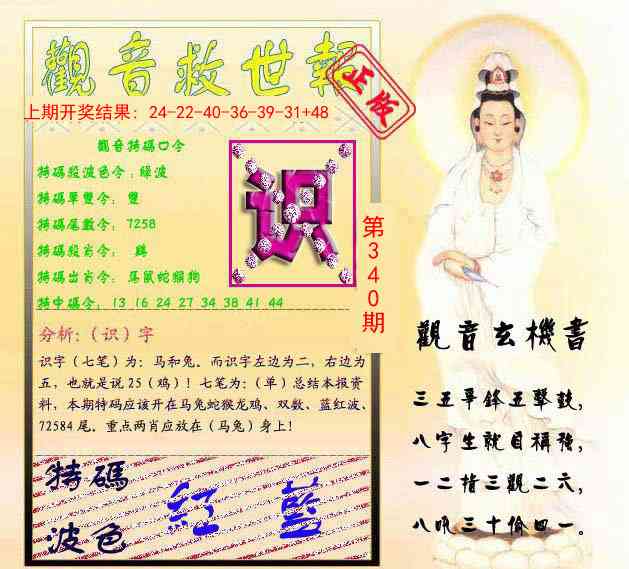 觀音救世報
正版
上期开奖结果：24-22-40-36-39-31+48
觀音特碼口令
特碼段波色令：綠波
特碼單雙令： 雙
特碼尾數令： 7258
特碼段肖令： 鷄
特碼出肖令： 馬鼠蛇猴狗
特中碼令： 13 16 24 27 34 38 41 44
识
第340期
分析:（识）字
识字（七笔）为：马和兔。而识字左边为二，右边为
五，也就是说25（鸡）！七笔为：（单）总结本报资
料，本期特码应该开在马兔蛇猴龙鸡、双数、蓝红波、
72584尾。重点两肖应放在（马兔）身上！
特碼
波色
紅 藍
觀音玄機書
三五爭鋒五擊鼓，
八字生就自稱強，
一二指三觀二六，
八吼三十偷四一。